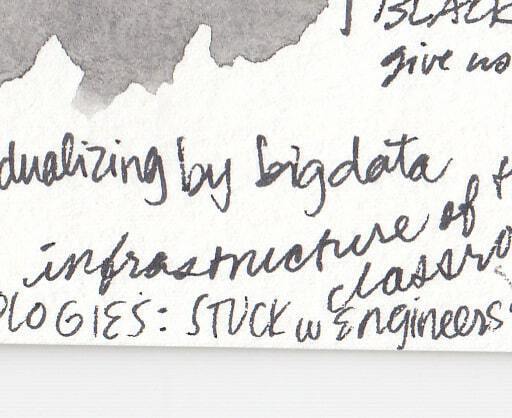 BLACK
give us
dualizing by big data
infrastructure of
classro
OLOGIES: STUCK w Engineers